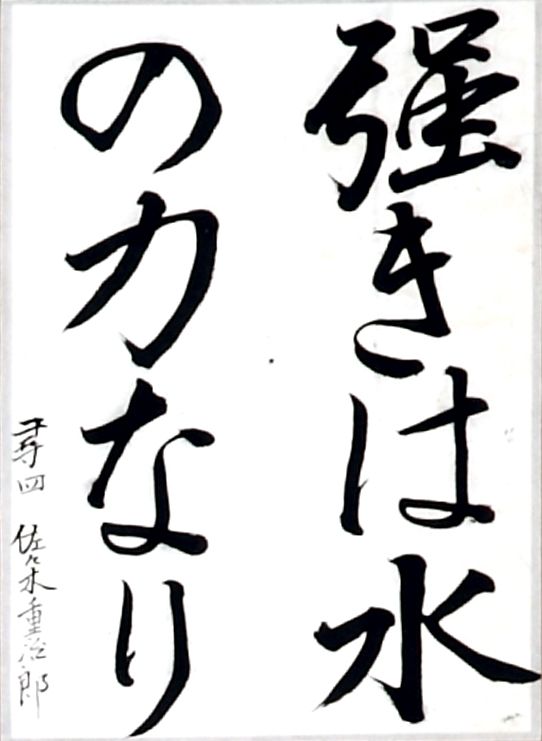 強きは水
の力なり
尋四 佐々木重治郎